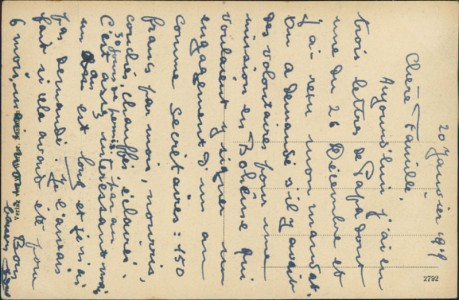 20 Janvier 1919
Chère Famille,
Aujourd'hui j'ai eu
trois lettres de Papa dont
une du 26 Décembre et
j'ai reçu mon mandat.
On a demandé s'il y avait
des volontaires pour une
mission en Bohême qui
voulaient y signer un
engagement d'un an
comme secrétaires : 150
francs par mois, nourris
couchés, chauffés, éclairés.
30 jours de permis. par an
C'est assez intéressant mais
un an est long et je n'ai
pas demandé. Je l'aurais
fait si cela avait été pour
6 mois,
Bons
2792